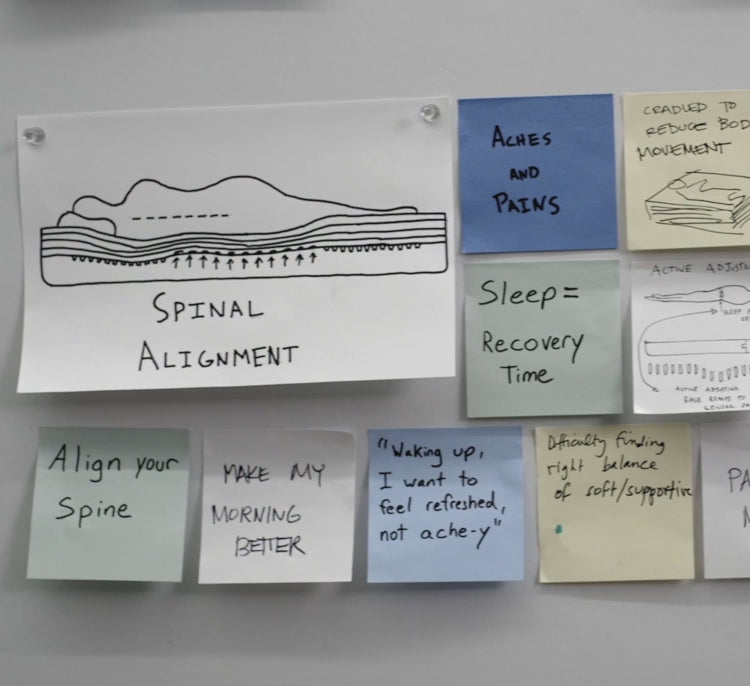 SPINAL
ALIGNMENT
ACHES
AND
PAINS
CRADLED TO
REDUCE BOD
MOVEMENT
Sleep =
Recovery
Time
ACTIVE ADJUSTM
SLEEP
ACTIVE ADJUSTING
BASE REACTS TO
SENSOR
Align your
Spine
MAKE MY
MORNING
BETTER
"Waking up,
I want to
feel refreshed,
not ache-y"
Difficulty finding
right balance
of soft/supportive
PA
M